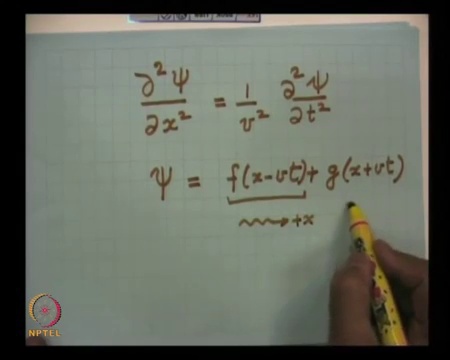 ∂²Ψ/∂x² = 1/v² ∂²Ψ/∂t²
Ψ = f(x-vt) + g(x+vt)
→ +x
NPTEL